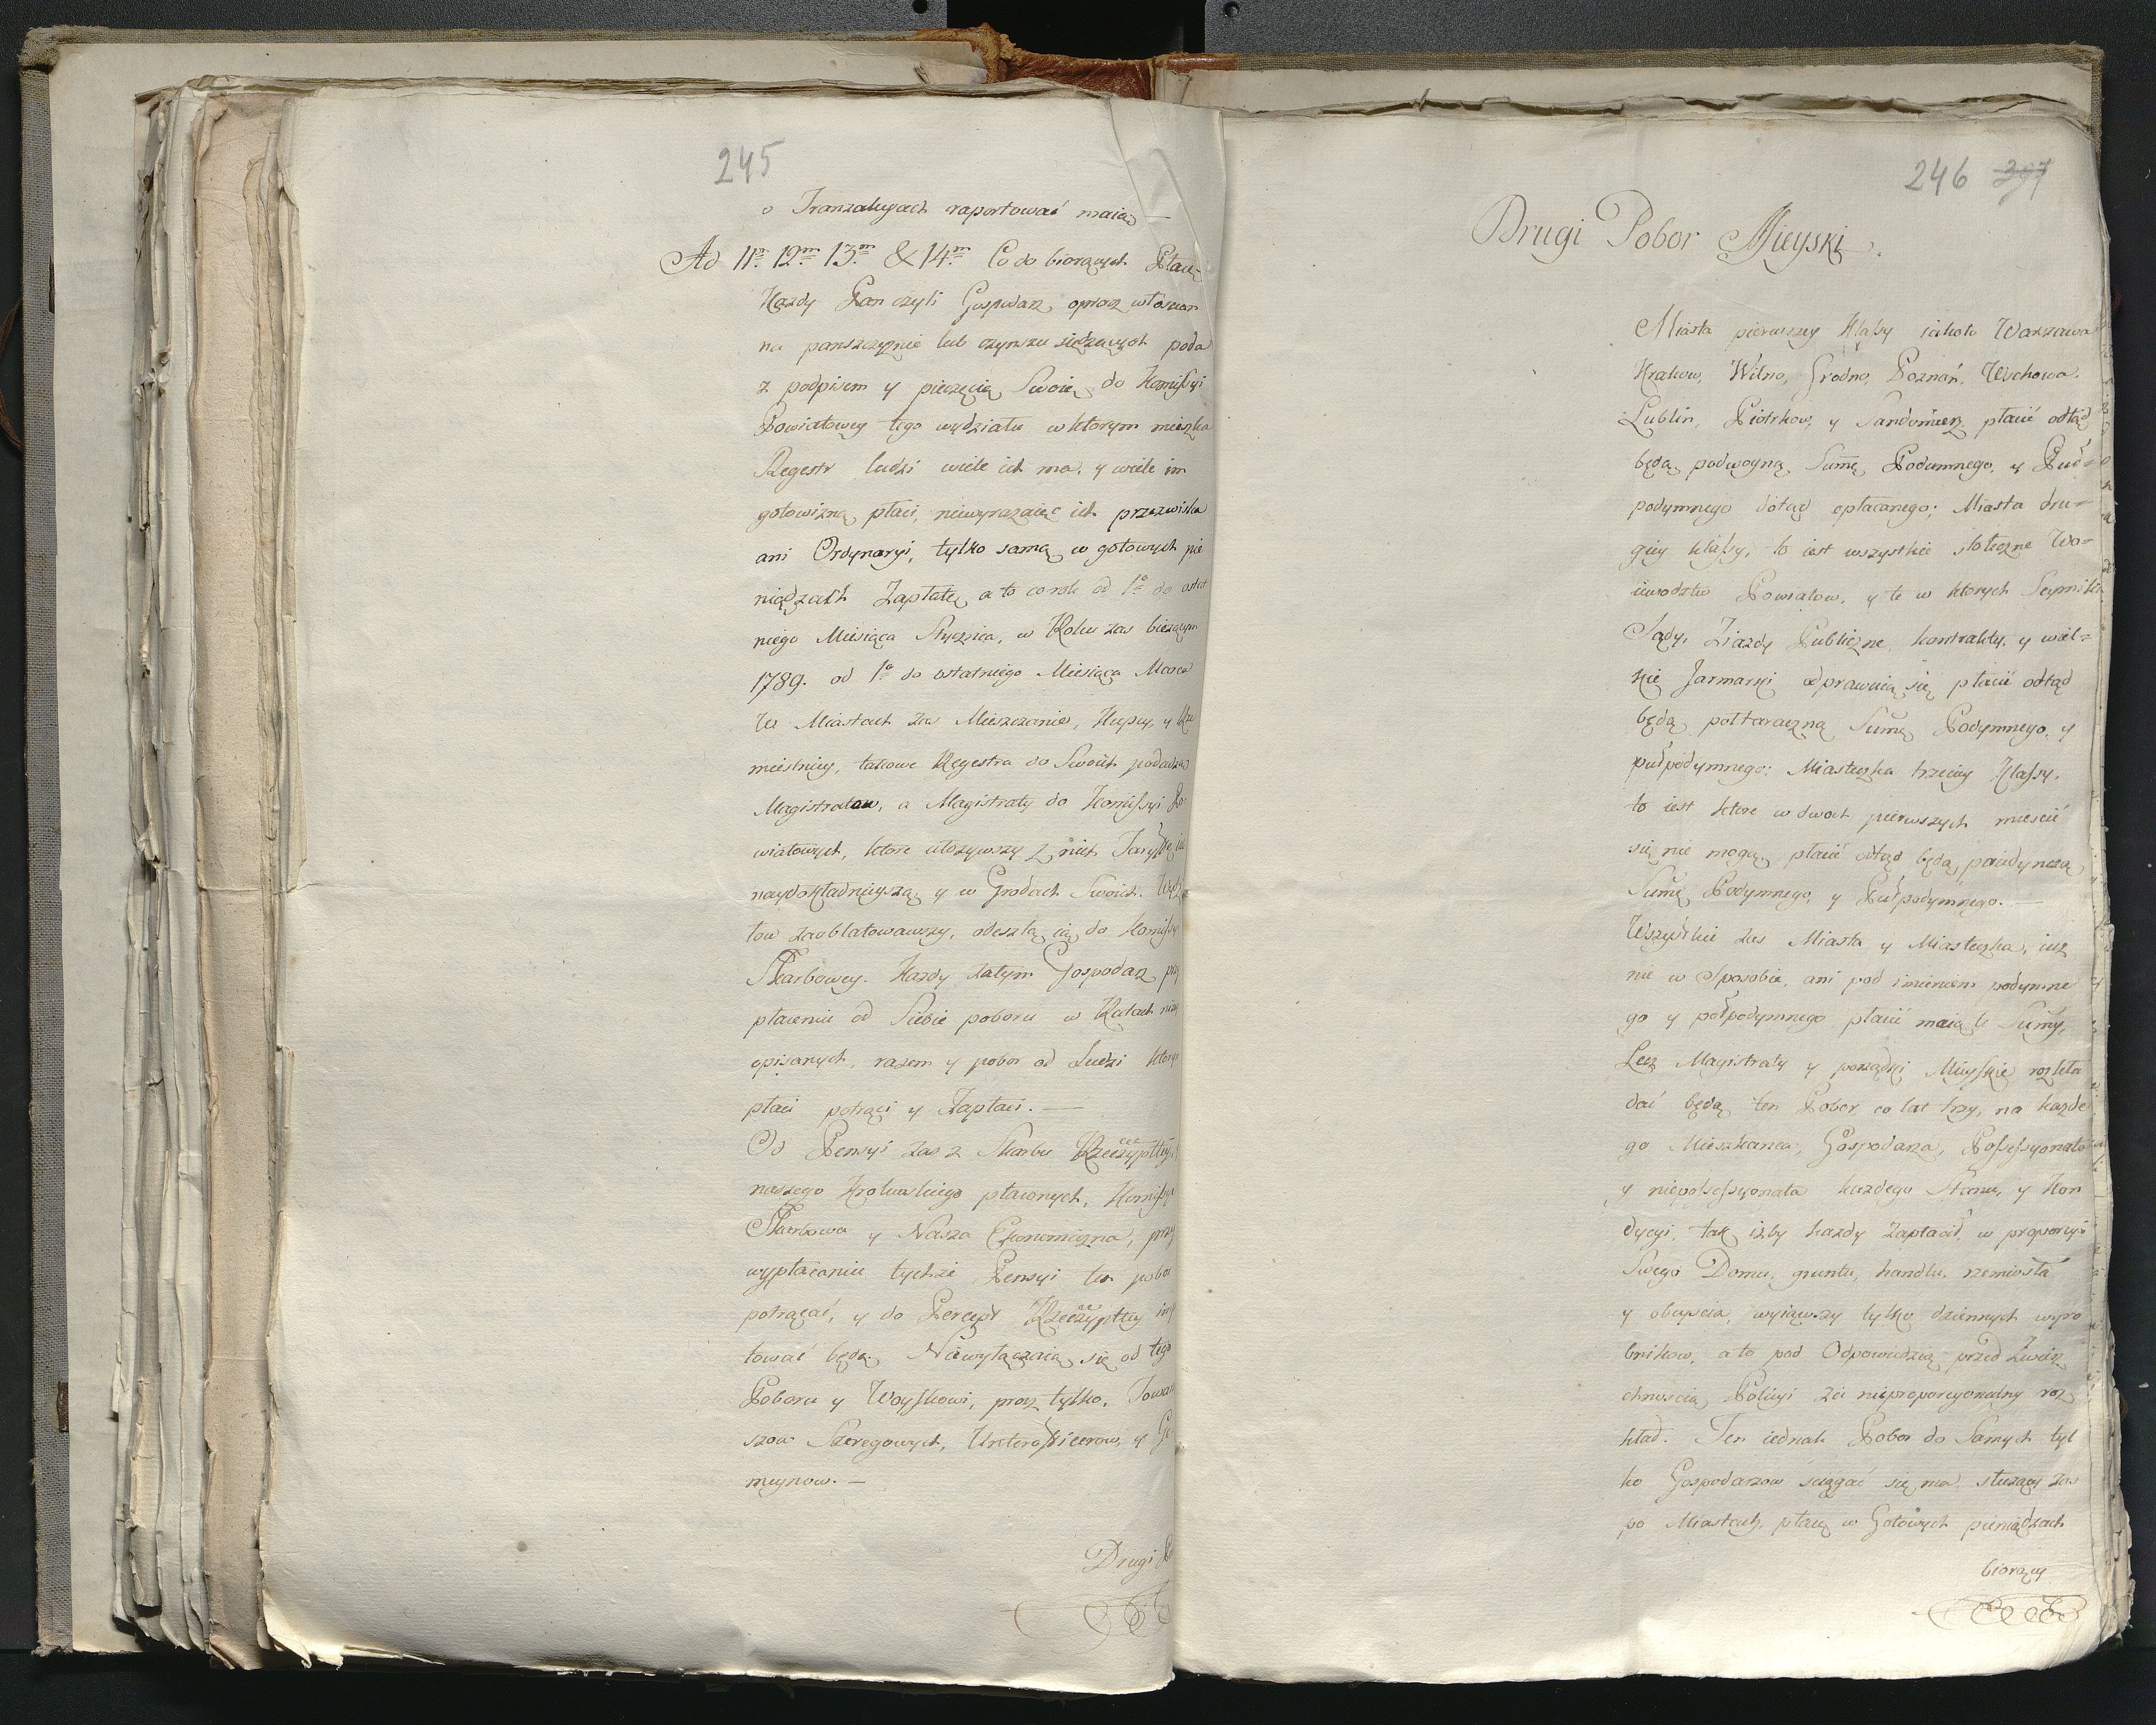 245
o Tranzakcyach raportować maią —
Ad 11m 12m 13m & 14m Co do biorących Płacę
Każdy Pan czyli Gospodarz oprocz włoscian
na panszczyznie lub czynszu siedzących poda
z podpisem y pieczęcią Swoią do Komissyi
Powiatowey tego wydziału w ktorym mieszka
Regestr ludzi wiele ich ma, y wiele im
gotowizną płaci, niewyrazaiąc ich przezwiska
ani Ordynaryi, tylko samą w gotowych pie
niądzach Zapłatę a to co rok od 1a do ostat
niego Miesiąca Stycznia, w Roku zas bieżącym
1789. od 1a do ostatniego Miesiąca Marca
W Miastach zas Mieszczanie, Kupcy, y Rze
mieslnicy, takowe Regestra do Swoich podadzą
Magistratow, a Magistraty do Komissyi Po
wiatowych, ktore ułozywszy z nich Taryffę iak
naydokładnieyszą y w Grodach Swoich
tow zaoblatowawszy, odeszlą ią do Komissyi
Skarbowey. Kazdy zatym Gospodarz przy
płaceniu od Siebie poboru w Ratach niżey
opisanych, razem y pobor od Ludzi ktorym
płaci potrąci y Zapłaci. —
Od Pensyi zas z Skarbu Rzeczypltey,
naszego Krolewskiego płaconych, Komissya
Skarbowa y Nasza Ekonomiczna, przy
wypłacaniu tychże Pensyi ten pobor
potrącać, y do Percept Rzeczypltey im
tować będą. Niewyłączaią się od tego
Poboru y Woyskowi, procz tylko, Towar
szow Szeregowych, Unterofficerow, y Ge
meynow. —
Drugi Po
246 397
Drugi Pobor Mieyski.
Miasta pierwszey Klassy iakoto Warszawa
Krakow, Wilno, Grodno, Poznań, Wschowa.
Lublin, Piotrkow, y Sandomierz, płacić odtąd
będą podwoyną Sumę Podymnego, y Puł-
podymnego dotąd opłacanego; Miasta dru-
giey klassy, to iest wszystkie stołeczne Wo-
iewodztw Powiatow, y te w ktorych Seymiki
Sądy, Ziazdy Publiczne, kontrakty, y wiel-
kie Jarmarki odprawuią się płacić odtąd
będą połtaraczną Sumę Podymnego, y
pułpodymnego; Miasteczka trzeciey Klassy,
to iest ktore w dwoch pierwszych miescić
się nie mogą, płacić odtąd będą, poiedynczą
Sumę Podymnego, y Pułpodymnego. —
Wszystkie zas Miasta y Miasteczka, iuz
nie w Sposobie, ani pod imieniem podymne
go y połpodymnego płacić maią te Sumy,
Lecz Magistraty y porządki Mieyskie rozkła
dać będą ten Pobor co lat trzy, na kazde
go Mieszkanca, Gospodarza, Possessyonata
y niepossessyonata kazdego Stanu, y Kon
dycyi, tak iżby kazdy zapłacił, w proporcyi
Swego Domu, gruntu, handlu, rzemiosła
y obeyscia, wyiąwszy tylko dziennych wyro
bnikow, a to pod Odpowiedzią przed Zwierz
chnoscią Policyi za nieproporcyonalny roz
kład. Ten iednak Pobor do Samych tyl
ko Gospodarzow sciągać się ma, słuzący zas
po Miastach, płacę w Gotowych pieniądzach
biorący